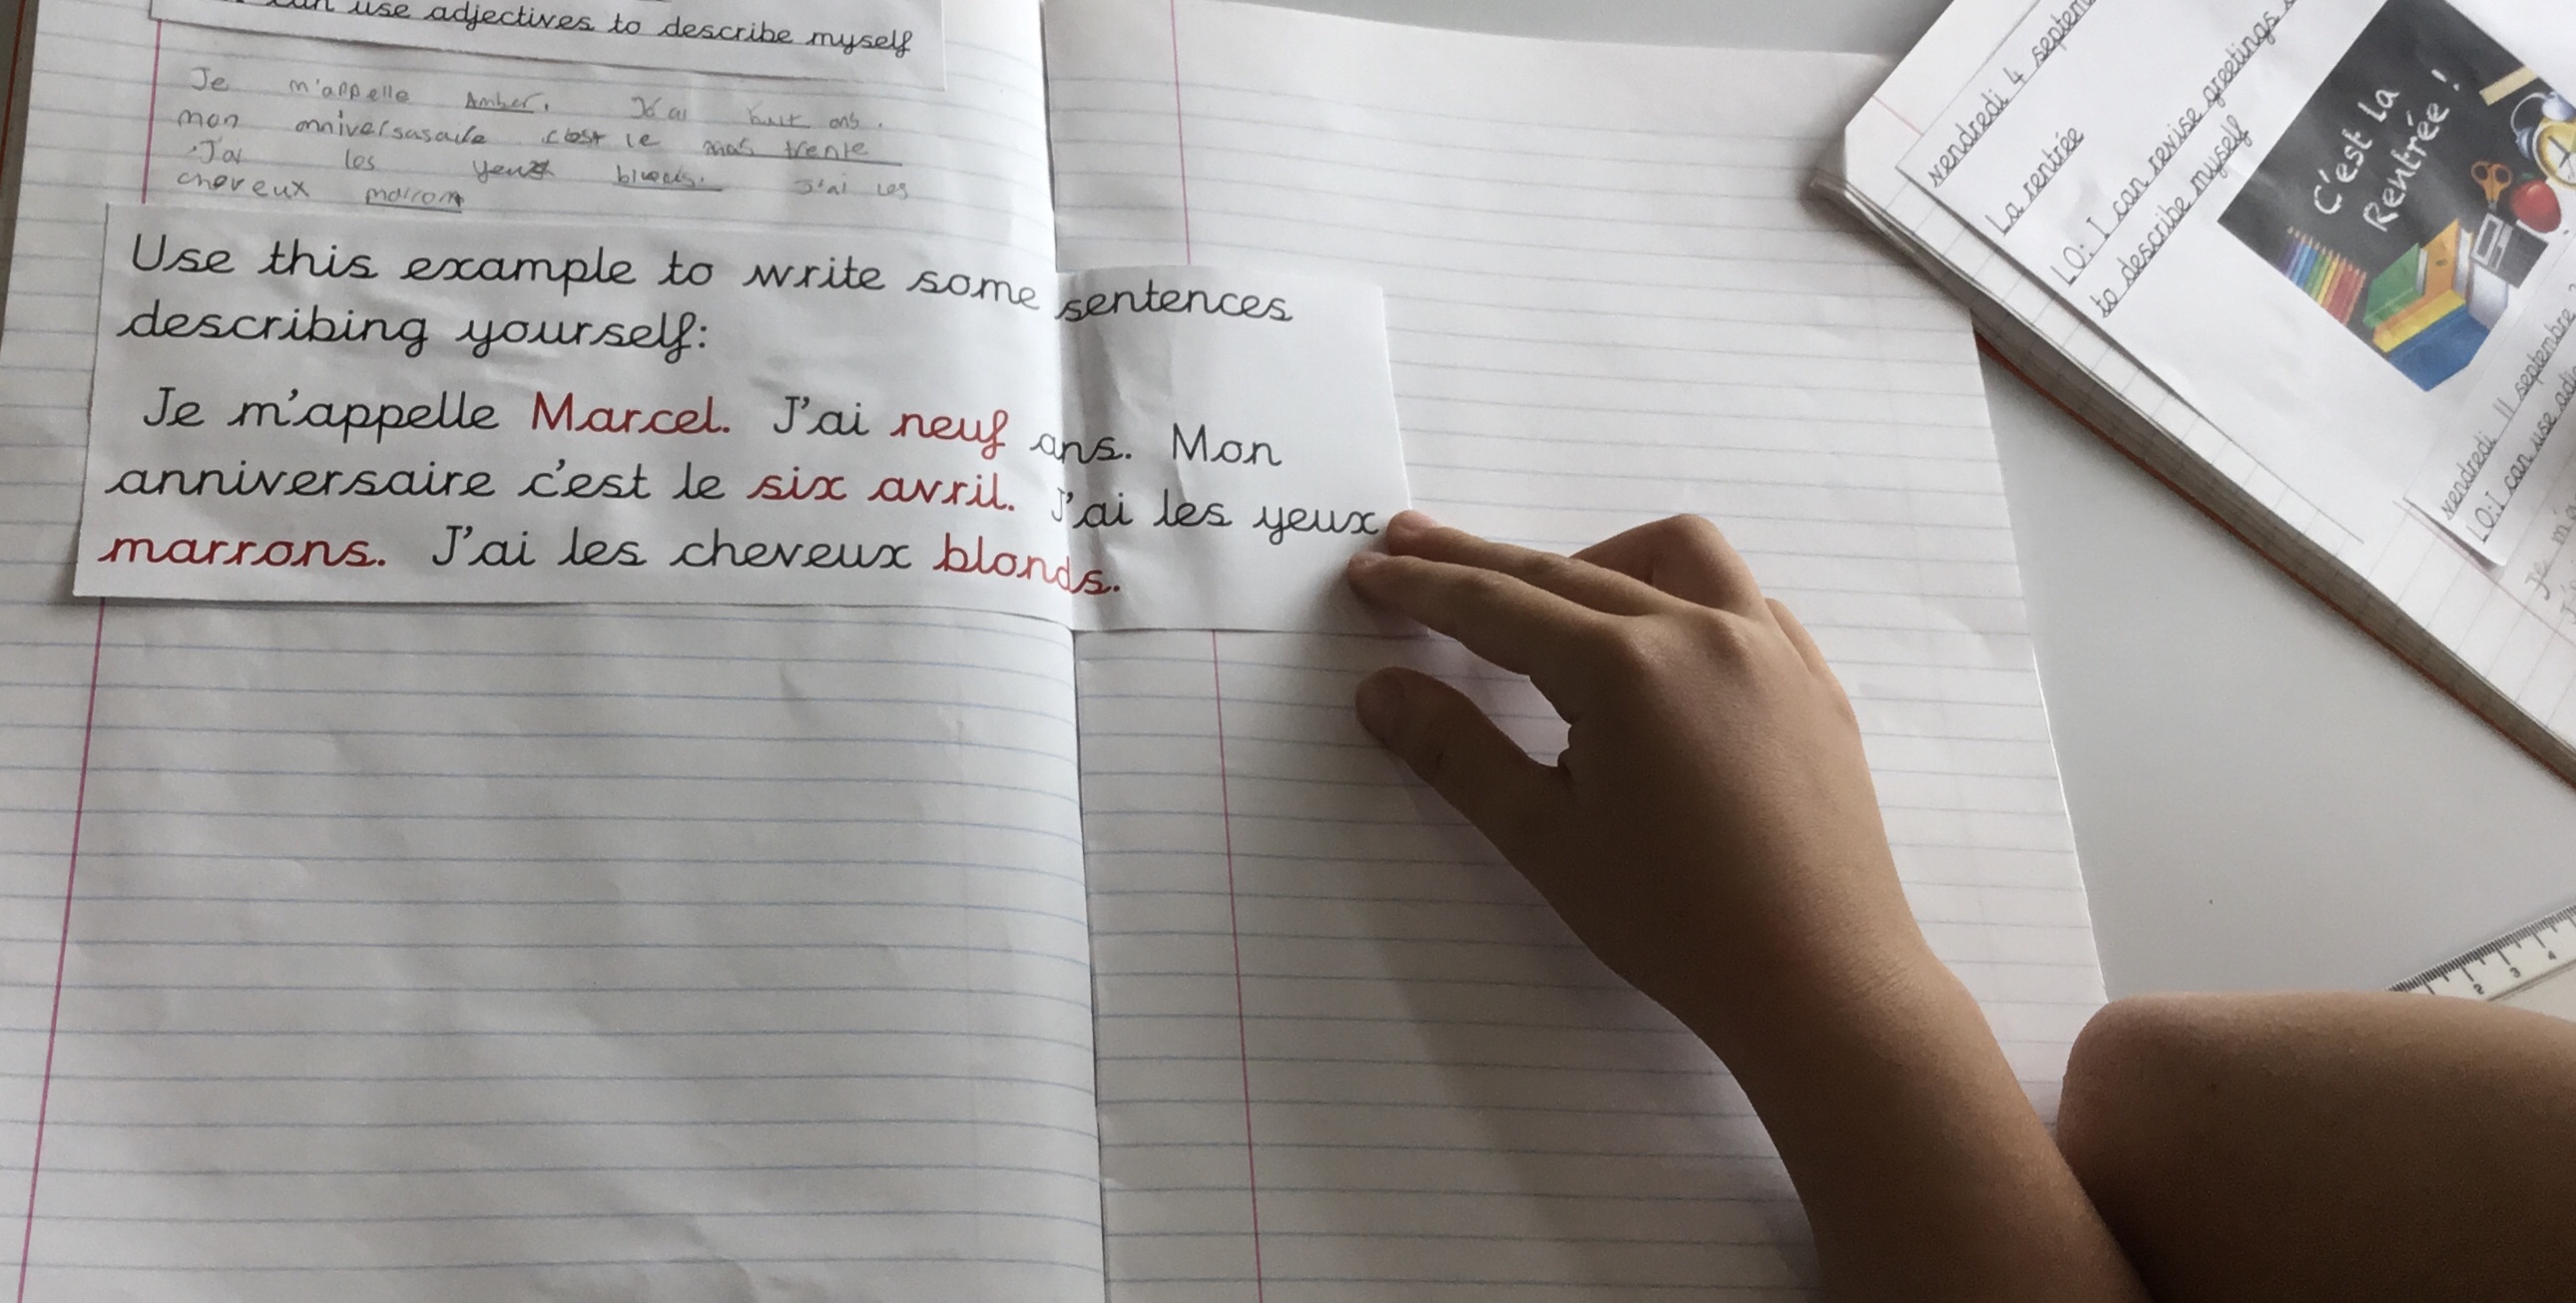 can use adjectives to describe myself
Je m'appelle Amber. J'ai huit ans.
mon anniversasaile c'est le mas trente
J'ai les yeux bleus. J'ai les
cheveux marron
Use this example to write some sentences
describing yourself:
Je m'appelle Marcel. J'ai neuf ans. Mon
anniversaire c'est le six avril. J'ai les yeux
marrons. J'ai les cheveux blonds.
vendredi 4 septem
La rentrée
LO: I can revise greetings
to describe myself
C'est la
Rentrée!
vendredi 11 septembre
LO: I can use adje
Je m'a
2 3 4